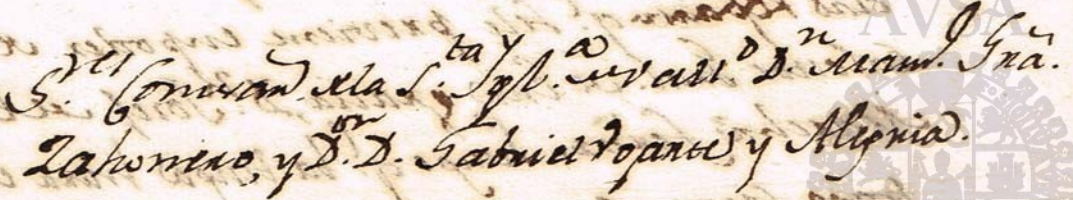 S.res Comisan.s de la S.ta Igl.a de Vall.d D.n Man.l Gra.
Zahonero, y D.or D. Gabriel Ugarte, y Alegria.
AVSA